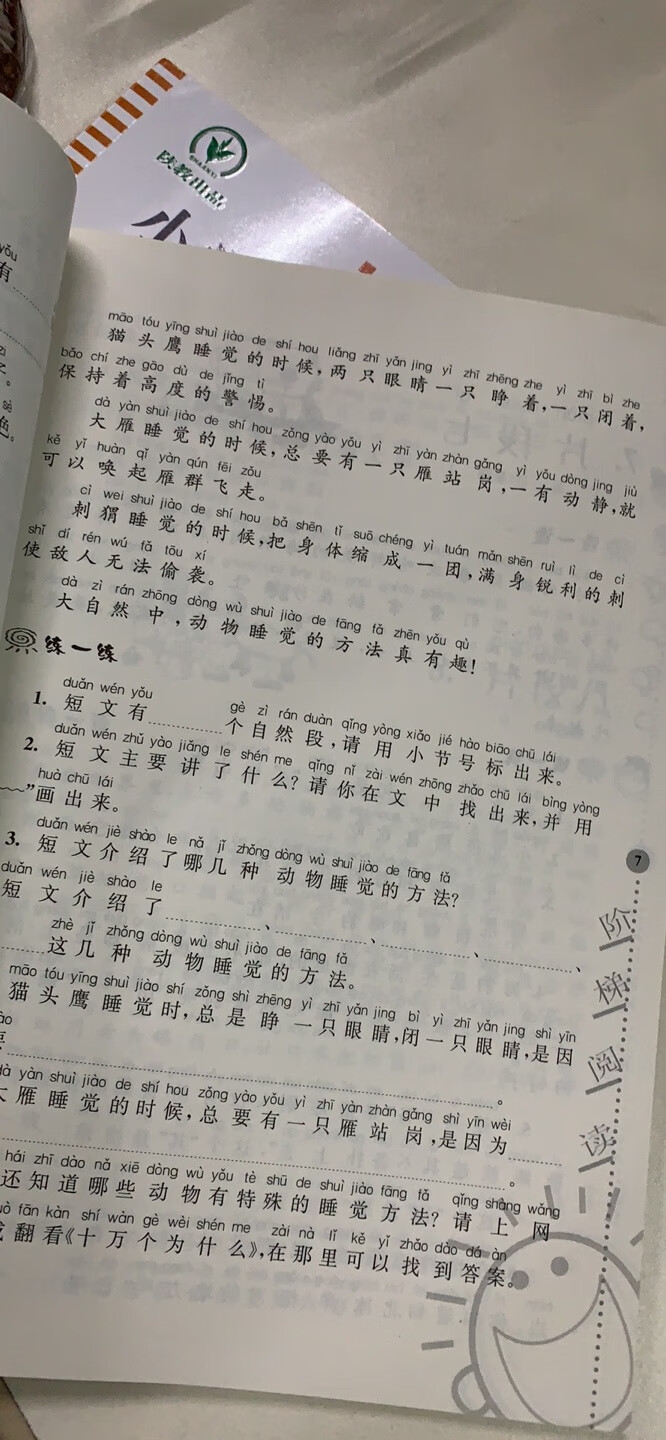 SHAANXI
陕教出品
小
yǒu
有
zì
。
sè
色。
māo tóu yīng shuì jiào de shí hou liǎng zhī yǎn jing yì zhī zhēng zhe yì zhī bì zhe
猫头鹰睡觉的时候,两只眼睛一只睁着,一只闭着,
bǎo chí zhe gāo dù de jǐng tì
保持着高度的警惕。
dà yàn shuì jiào de shí hou zǒng yào yǒu yì zhī yàn zhàn gǎng yì yǒu dòng jing jiù
大雁睡觉的时候,总要有一只雁站岗,一有动静,就
kě yǐ huàn qǐ yàn qún fēi zǒu
可以唤起雁群飞走。
cì wei shuì jiào de shí hou bǎ shēn tǐ suō chéng yì tuán mǎn shēn ruì lì de cì
刺猬睡觉的时候,把身体缩成一团,满身锐利的刺
shǐ dí rén wú fǎ tōu xí
使敌人无法偷袭。
dà zì rán zhōng dòng wù shuì jiào de fāng fǎ zhēn yǒu qù
大自然中,动物睡觉的方法真有趣!
练一练
duǎn wén yǒu gè zì rán duàn qǐng yòng xiǎo jié hào biāo chū lái
1. 短文有 个自然段,请用小节号标出来。
duǎn wén zhǔ yào jiǎng le shén me qǐng nǐ zài wén zhōng zhǎo chū lái bìng yòng
2. 短文主要讲了什么?请你在文中找出来,并用
huà chū lái
”画出来。
duǎn wén jiè shào le nǎ jǐ zhǒng dòng wù shuì jiào de fāng fǎ
3. 短文介绍了哪几种动物睡觉的方法?
duǎn wén jiè shào le
短文介绍了 、 、 、
zhè jǐ zhǒng dòng wù shuì jiào de fāng fǎ
这几种动物睡觉的方法。
māo tóu yīng shuì jiào shí zǒng shì zhēng yì zhī yǎn jing bì yì zhī yǎn jing shì yīn
猫头鹰睡觉时,总是睁一只眼睛,闭一只眼睛,是因
。
dà yàn shuì jiào de shí hou zǒng yào yǒu yì zhī yàn zhàn gǎng shì yīn wèi
大雁睡觉的时候,总要有一只雁站岗,是因为
。
hái zhī dào nǎ xiē dòng wù yǒu tè shū de shuì jiào fāng fǎ qǐng shàng wǎng
还知道哪些动物有特殊的睡觉方法?请上网
fān kàn shí wàn gè wèi shén me zài nà lǐ kě yǐ zhǎo dào dá àn
翻看《十万个为什么》,在那里可以找到答案。
7
阶梯阅读